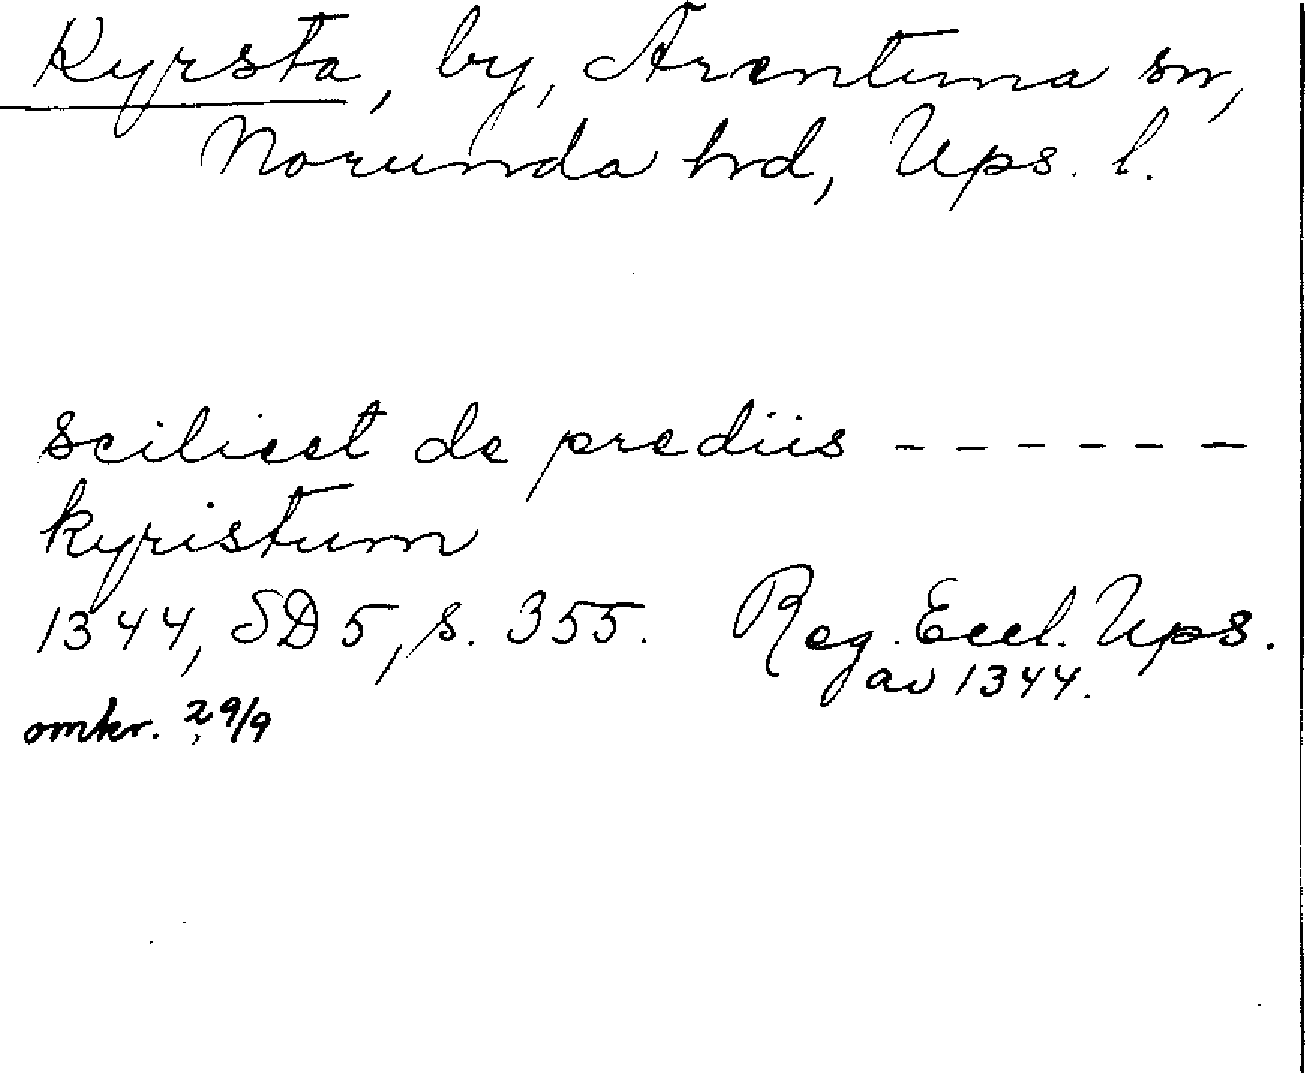 Kyrsta, by, Ärentuna sn,
Norunda hrd, Ups. l.
scilicet de prediis - - - - - -
kyristum
1344, SD 5, s. 355. Reg. Eccl. Ups.
av 1344.
omkr. 29/9